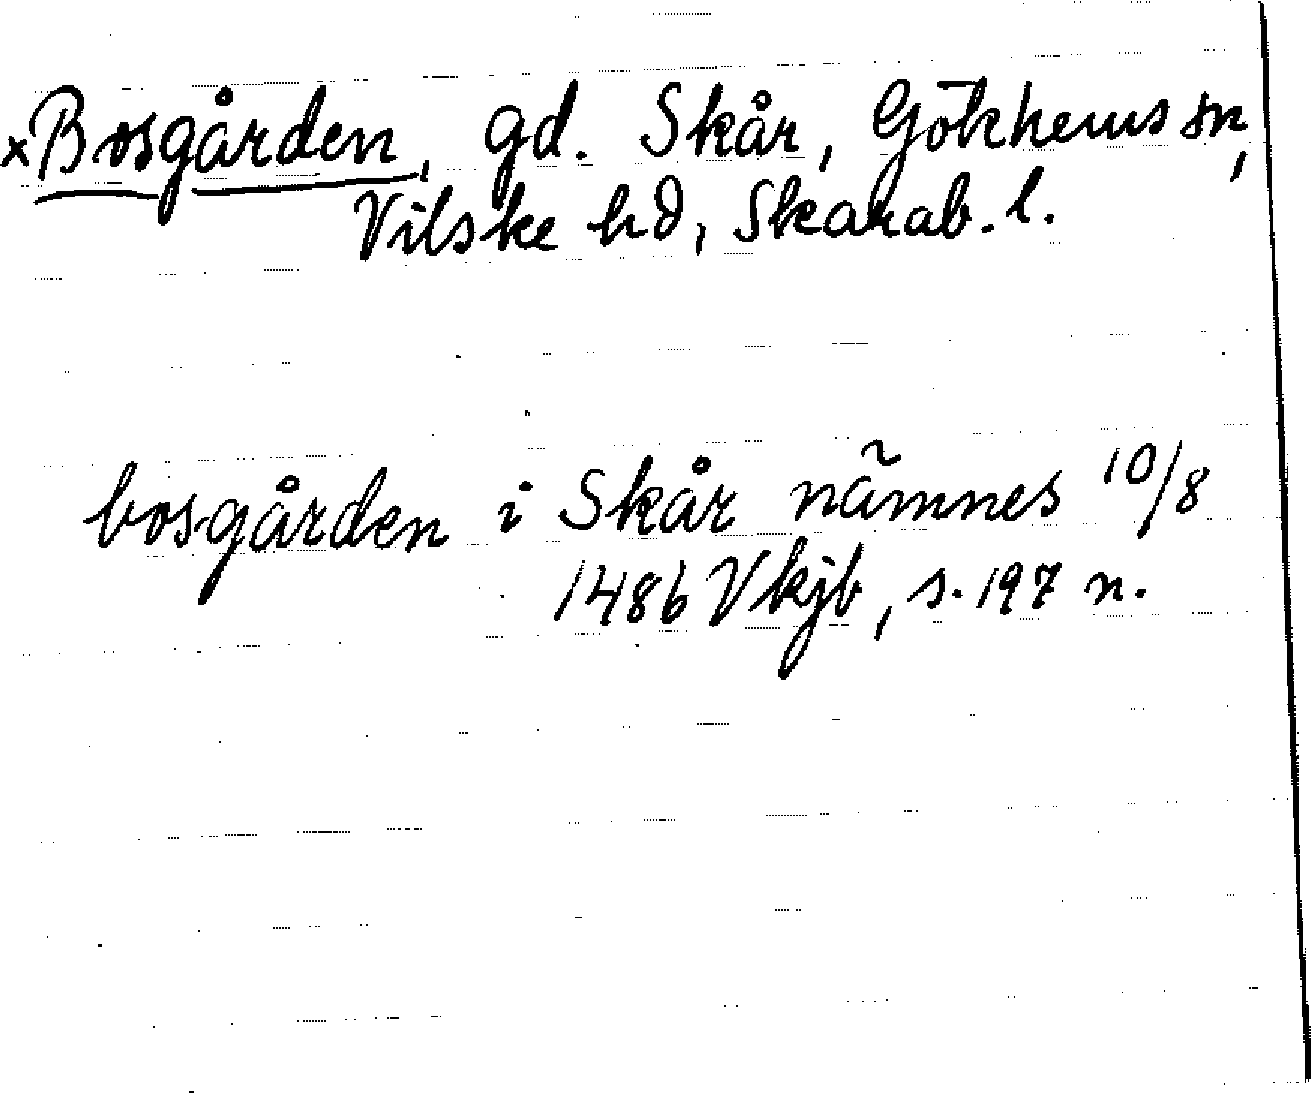 ×Bosgården, gd. Skår, Gökhems sn,
Vilske hd, Skarab. l.
bosgården i Skår nämnes 10/8
1486 Vkjb, s. 197 n.